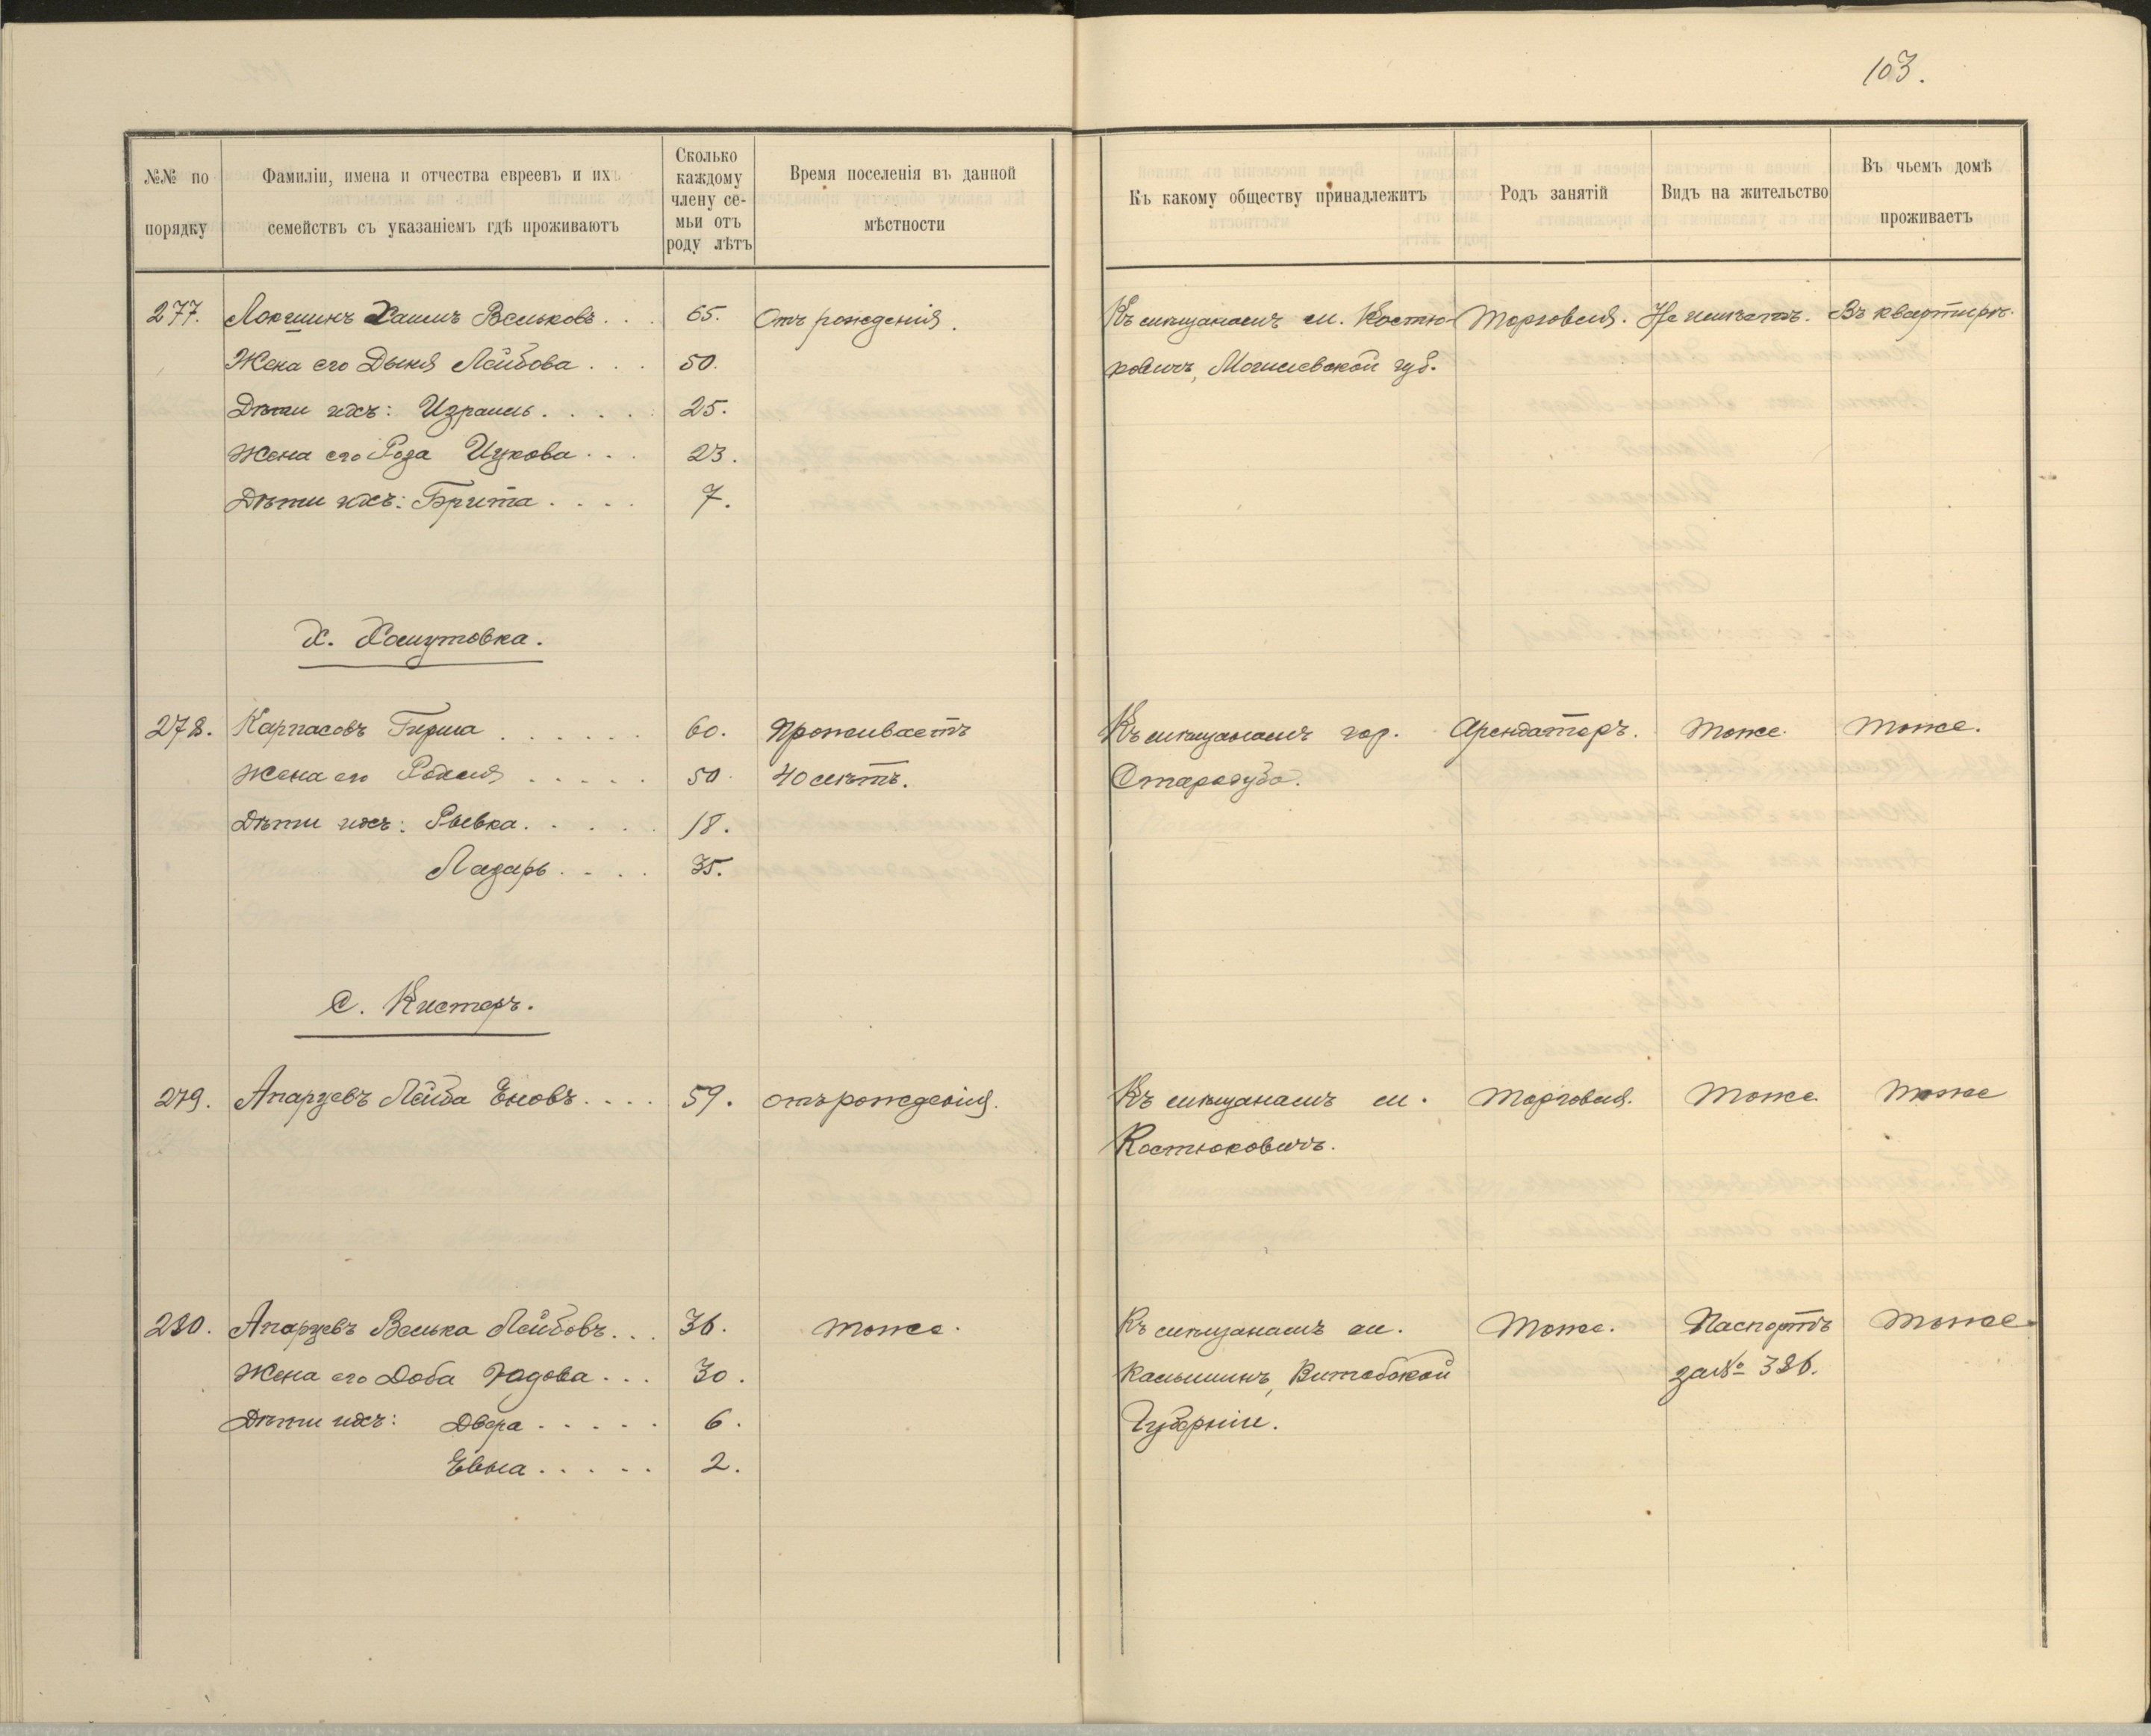 103.
№№ по порядку
Фамиліи, имена и отчества евреевъ и ихъ семействъ съ указаніемъ гдѣ проживаютъ
Сколько каждому члену семьи отъ роду лѣтъ
Время поселенія въ данной мѣстности
Къ какому обществу принадлежитъ
Родъ занятій
Видъ на жительство
Въ чьемъ домѣ проживаетъ
277. Локшинъ Хаимъ Вельковъ... 65. Отъ рожденія. Къ мѣщанамъ м. Костю- Торговля. Не имѣетъ. Въ квартирѣ.
Жена его Дыня Лейбова... 50. ковичъ, Могилевской губ.
Дѣти ихъ: Израиль..... 25.
Жена его Роза Ицкова... 23.
Дѣти ихъ: Брита.... 7.
Х. Хамутовка.
278. Карпасовъ Гирша...... 60. Проживаетъ Къ мѣщанамъ гор. Арендаторъ. Тоже. Тоже.
Жена его ..... 50. 40 лѣтъ. Стародуба.
Дѣти ихъ: Рывка..... 18.
Лазарь.... 35.
С. Кистеръ.
279. Апарцевъ Лейба Еновъ.... 59. отъ рожденія. Къ мѣщанамъ м. Торговля. Тоже. Тоже
Костюковичъ.
280. Апарцевъ Велька Лейбовъ... 36. Тоже. Къ мѣщанамъ м. Тоже. Паспортъ Тоже.
Жена его Доба ... 30. Витебской за № 386.
Дѣти ихъ: Двера..... 6. Губерніи.
Евна..... 2.